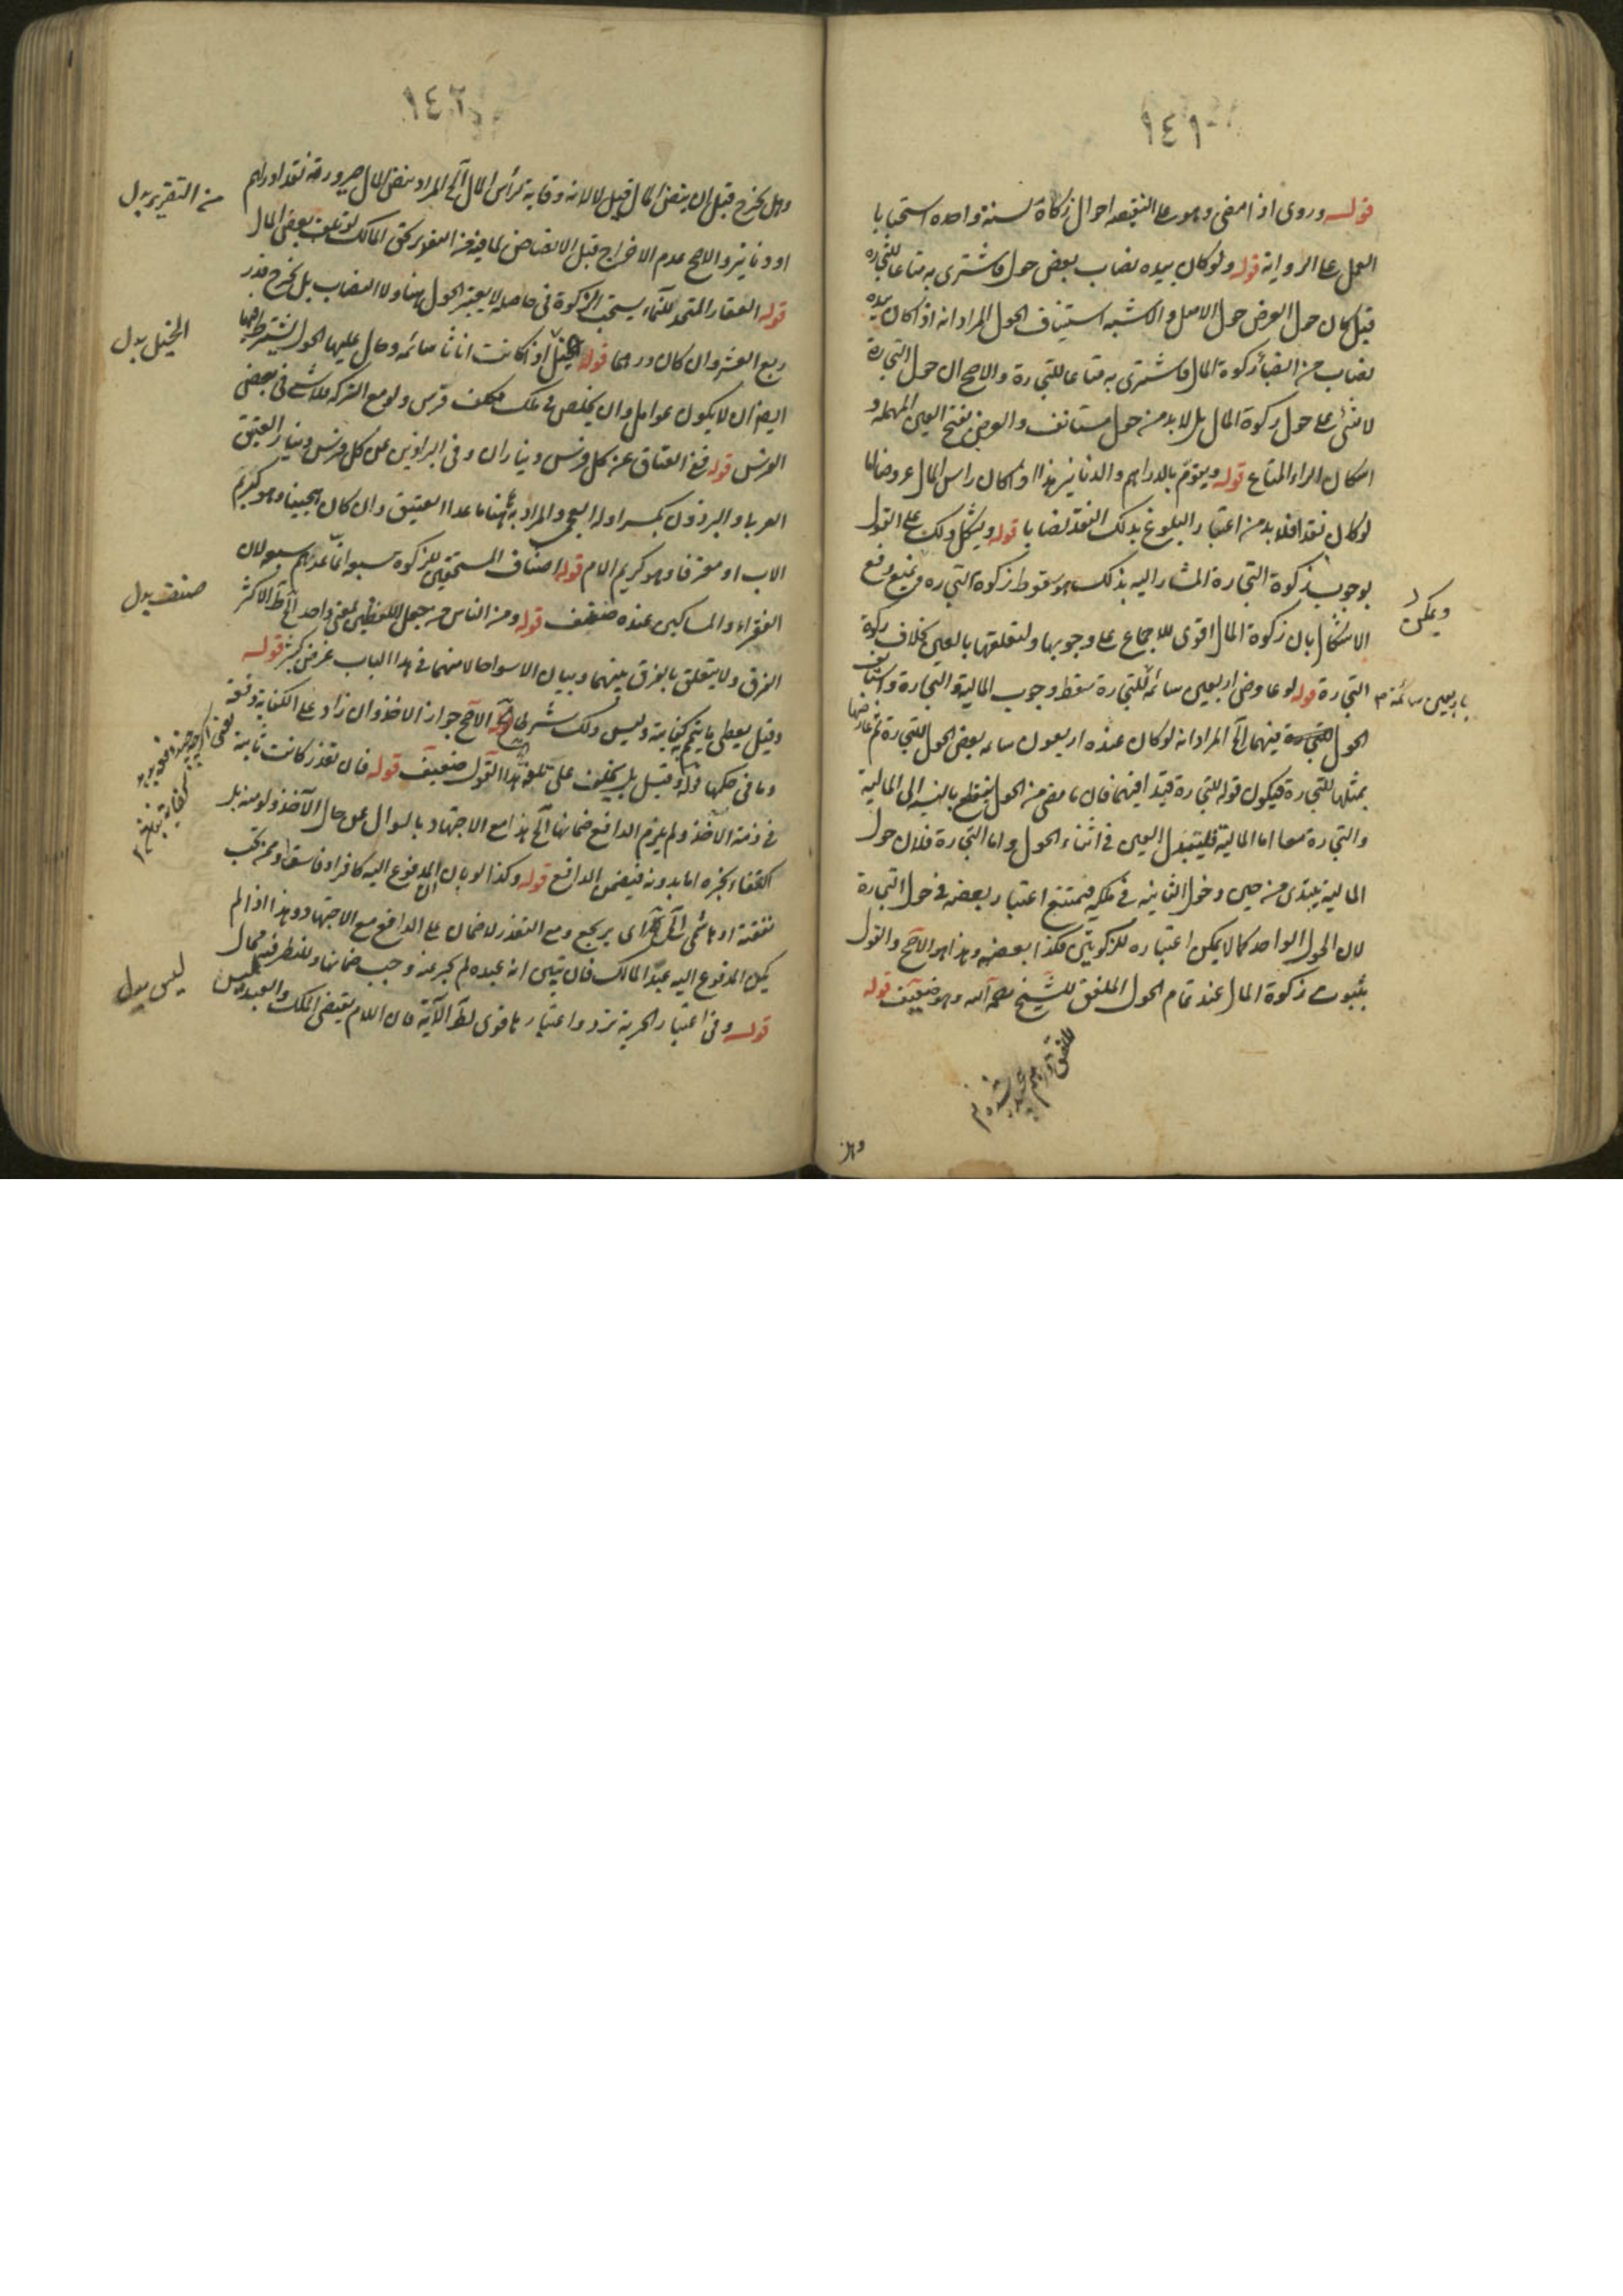 ١٤١
قوله وروى اذا مضى وهو على النقيصه احوال زكاة لسنة واحده استحبابا
العمل على الرواية قوله ولو كان بيده نصاب بعض حول فاشترى به متاعا للتجارة
قيل كان حول العرض حول الاصل والاشبه استيناف الحول المراد انه اذا كان بيده
نصاب من زكوة المال فاشترى به متاعا للتجارة والاصح ان حول التجارة
لا يبنى على حول زكوة المال بل لا بد من حول مستانف والعرض بفتح العين المهملة و
اسكان الراء المتاع قوله ويقوّم بالدراهم والدنانير هذا اذا كان راس المال عروضا اما
لو كان نقدا فلا بد من اعتبار البلوغ بذلك النقد نصابا قوله ويشكل ذلك على القول
بوجوب زكوة التجارة المشار اليه بذلك هو سقوط زكوة التجاره ويمنع دفع
ويمكن
الاشكال بان زكوة المال اقوى للاجماع على وجوبها ولتعلقها بالعين بخلاف زكوة
التجارة قوله لو عاوض اربعين سائمة للتجارة سقط وجوب المالية والتجارة واستانف
باربعين سائمة م
الحول للتجارة فيهما آلخ المراد انه لو كان عنده اربعون سائمه بعض الحول للتجارة ثم عارضها
بمثلها للتجارة فيكون قوله للتجارة قيدا فيهما فان ما مضى من الحول ينقطع بالنسبة الى المالية
والتجارة معا اما المالية فلتبدل العين في اثناء الحول واما التجارة فلان حول
المالية يبتدى من حين دخول الثانية في ملكه فيمتنع اعتبار بعضه في حول التجارة
لان الحول الواحد كما لا يمكن اعتباره للزكوتين فكذا بعضه وهذا هو الاصح والقول
بثبوت زكوة المال عند تمام الحول الملفق للشيخ رحمه الله وهو ضعيف قوله
وهل
١٤٢
وهل يخرج قبل ان ينض المال قيل لا لانه وقاية لرأس المال آلخ المراد بنض المال صيرورته نقدا دراهم
من التقرير بدل
او دنانير والاصح عدم الاخراج قبل الانضاض لما فيه من التغرير بحق المالك لو تلف بعض المال
قوله العقار المتخذ للنماء يستحب الزكوة في حاصله لا يعتبر الحول هنا ولا النصاب بل يخرج قدر
ربع العشر وان كان درهما قوله الخيل اذا كانت اناثا سائمه وحال عليها الحول يشترط
الخيل بدل
ايضا ان لا يكون عوامل وان يخلص في ملك فرس ولو مع الشركه فلا شئ في بعض
الفرس قوله ففي العتاق عن كل فرس ديناران وفي البراذين عن كل فرس دينار العتيق
العربي والبرذون بكسر اوله العجمي والمراد به هنا ما عدا العتيق وان كان هجينا وهو كريم
الاب او مقرفا وهو كريم الام قوله اصناف المستحقين للزكوة سبعة انما عدهم سبعة لان
الفقراء والمساكين عنده صنف قوله ومن الناس من جعل اللفظين بمعنى واحد آلخ الاكثر
صنف بدل
الفرق ولا يتعلق بالفرق بينهما وبيان الاسوأ حالا منهما في هذا الباب غرض كثير قوله
وقيل يعطى ما يتم كفايته وليس ذلك شرطا الاصح جواز الاخذ وان زاد على الكفاية دفعة
وما في حكمها قوله وقيل بل يحلف على تلفه هذا القول ضعيف قوله فان تعذر كانت ثابتة
في ذمة الآخذ ولم يلزم الدافع ضمانها آلخ هذا مع الاجتهاد بالسوال عن حال الآخذ ولو منه بل
اكتفاء بخبره اما بدونه فيضمن الدافع قوله وكذا لو بان المدفوع اليه كافرا او فاسقا او ممن تجب
نفقته او هاشمى آلخ اى يرتجع ومع التعذر لا ضمان على الدافع مع الاجتهاد وهذا اذا لم
يكن المدفوع اليه عبد المالك فان تبين انه عبده لم يجز عنه وجب ضمانها وللنظر فيه مجال
قوله وفي اعتبار الحرية تردد واعتبارها قوى لظ الآية فان اللام يقتضى الملك والعبد ليس
ليس بدل